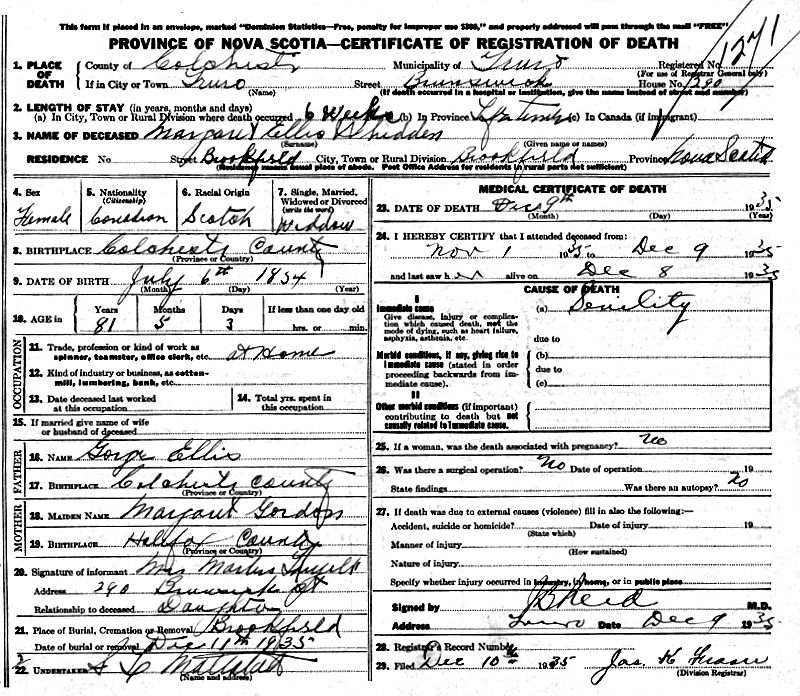 This form if placed in an envelope, marked "Dominion Statistics—Free, penalty for improper use $300," and properly addressed will pass through the mail "FREE"
PROVINCE OF NOVA SCOTIA—CERTIFICATE OF REGISTRATION OF DEATH
1271
1. PLACE OF DEATH
County of Colchester Municipality of Truro Registered No.
(For use of Registrar General only)
If in City or Town Truro Street Brunswick House No. 290
(Name) (If death occurred in a hospital or institution, give the name instead of street and number)
2. LENGTH OF STAY (in years, months and days)
(a) In City, Town or Rural Division where death occurred 6 Weeks (b) In Province Life time (c) In Canada (if immigrant)
3. NAME OF DECEASED Margaret Ellis
(Surname) (Given name or names)
RESIDENCE No. Street Brookfield City, Town or Rural Division Brookfield Province Nova Scotia
(Residence means usual place of abode. Post Office Address for residents in rural parts not sufficient)
4. Sex Female
5. Nationality (Citizenship) Canadian
6. Racial Origin Scotch
7. Single, Married, Widowed or Divorced (write the word) Widdow
8. BIRTHPLACE Colchester County
(Province or Country)
9. DATE OF BIRTH July 6th 1854
(Month) (Day) (Year)
10. AGE in Years 81 Months 5 Days 3 If less than one day old hrs. or min.
OCCUPATION
11. Trade, profession or kind of work as spinner, teamster, office clerk, etc. at Home
12. Kind of industry or business, as cotton-mill, lumbering, bank, etc.
13. Date deceased last worked at this occupation
14. Total yrs. spent in this occupation
15. If married give name of wife or husband of deceased
FATHER
16. NAME George Ellis
17. BIRTHPLACE Colchester County
(Province or Country)
MOTHER
18. MAIDEN NAME Margaret Gordon
19. BIRTHPLACE Halifax County
(Province or Country)
20. Signature of informant Mrs Martin
Address 290 Brunswick St
Relationship to deceased Daughter
21. Place of Burial, Cremation or Removal Brookfield
Date of burial or removal Dec 11th 1935
22. UNDERTAKER
(Name and address)
MEDICAL CERTIFICATE OF DEATH
23. DATE OF DEATH Dec 9th 1935
(Month) (Day) (Year)
24. I HEREBY CERTIFY that I attended deceased from:
Nov 1 1935 to Dec 9 1935
and last saw her alive on Dec 8 1935
CAUSE OF DEATH
I
Immediate cause
Give disease, injury or complication which caused death, not the mode of dying, such as heart failure, asphyxia, asthenia, etc.
(a) Senility
due to
Morbid conditions, if any, giving rise to immediate cause (stated in order proceeding backwards from immediate cause).
(b)
due to
(c)
II
Other morbid conditions (if important) contributing to death but not causally related to immediate cause.
25. If a woman, was the death associated with pregnancy? No
26. Was there a surgical operation? No Date of operation 19
State findings Was there an autopsy? No
27. If death was due to external causes (violence) fill in also the following:—
Accident, suicide or homicide? Date of injury 19
(State which)
Manner of injury
(How sustained)
Nature of injury
Specify whether injury occurred in industry, in home, or in public place
Signed by Reid M.D.
Address Truro Date Dec 9 1935
28. Registrar's Record Number
29. Filed Dec 10th 1935 Jas. K Fraser
(Division Registrar)